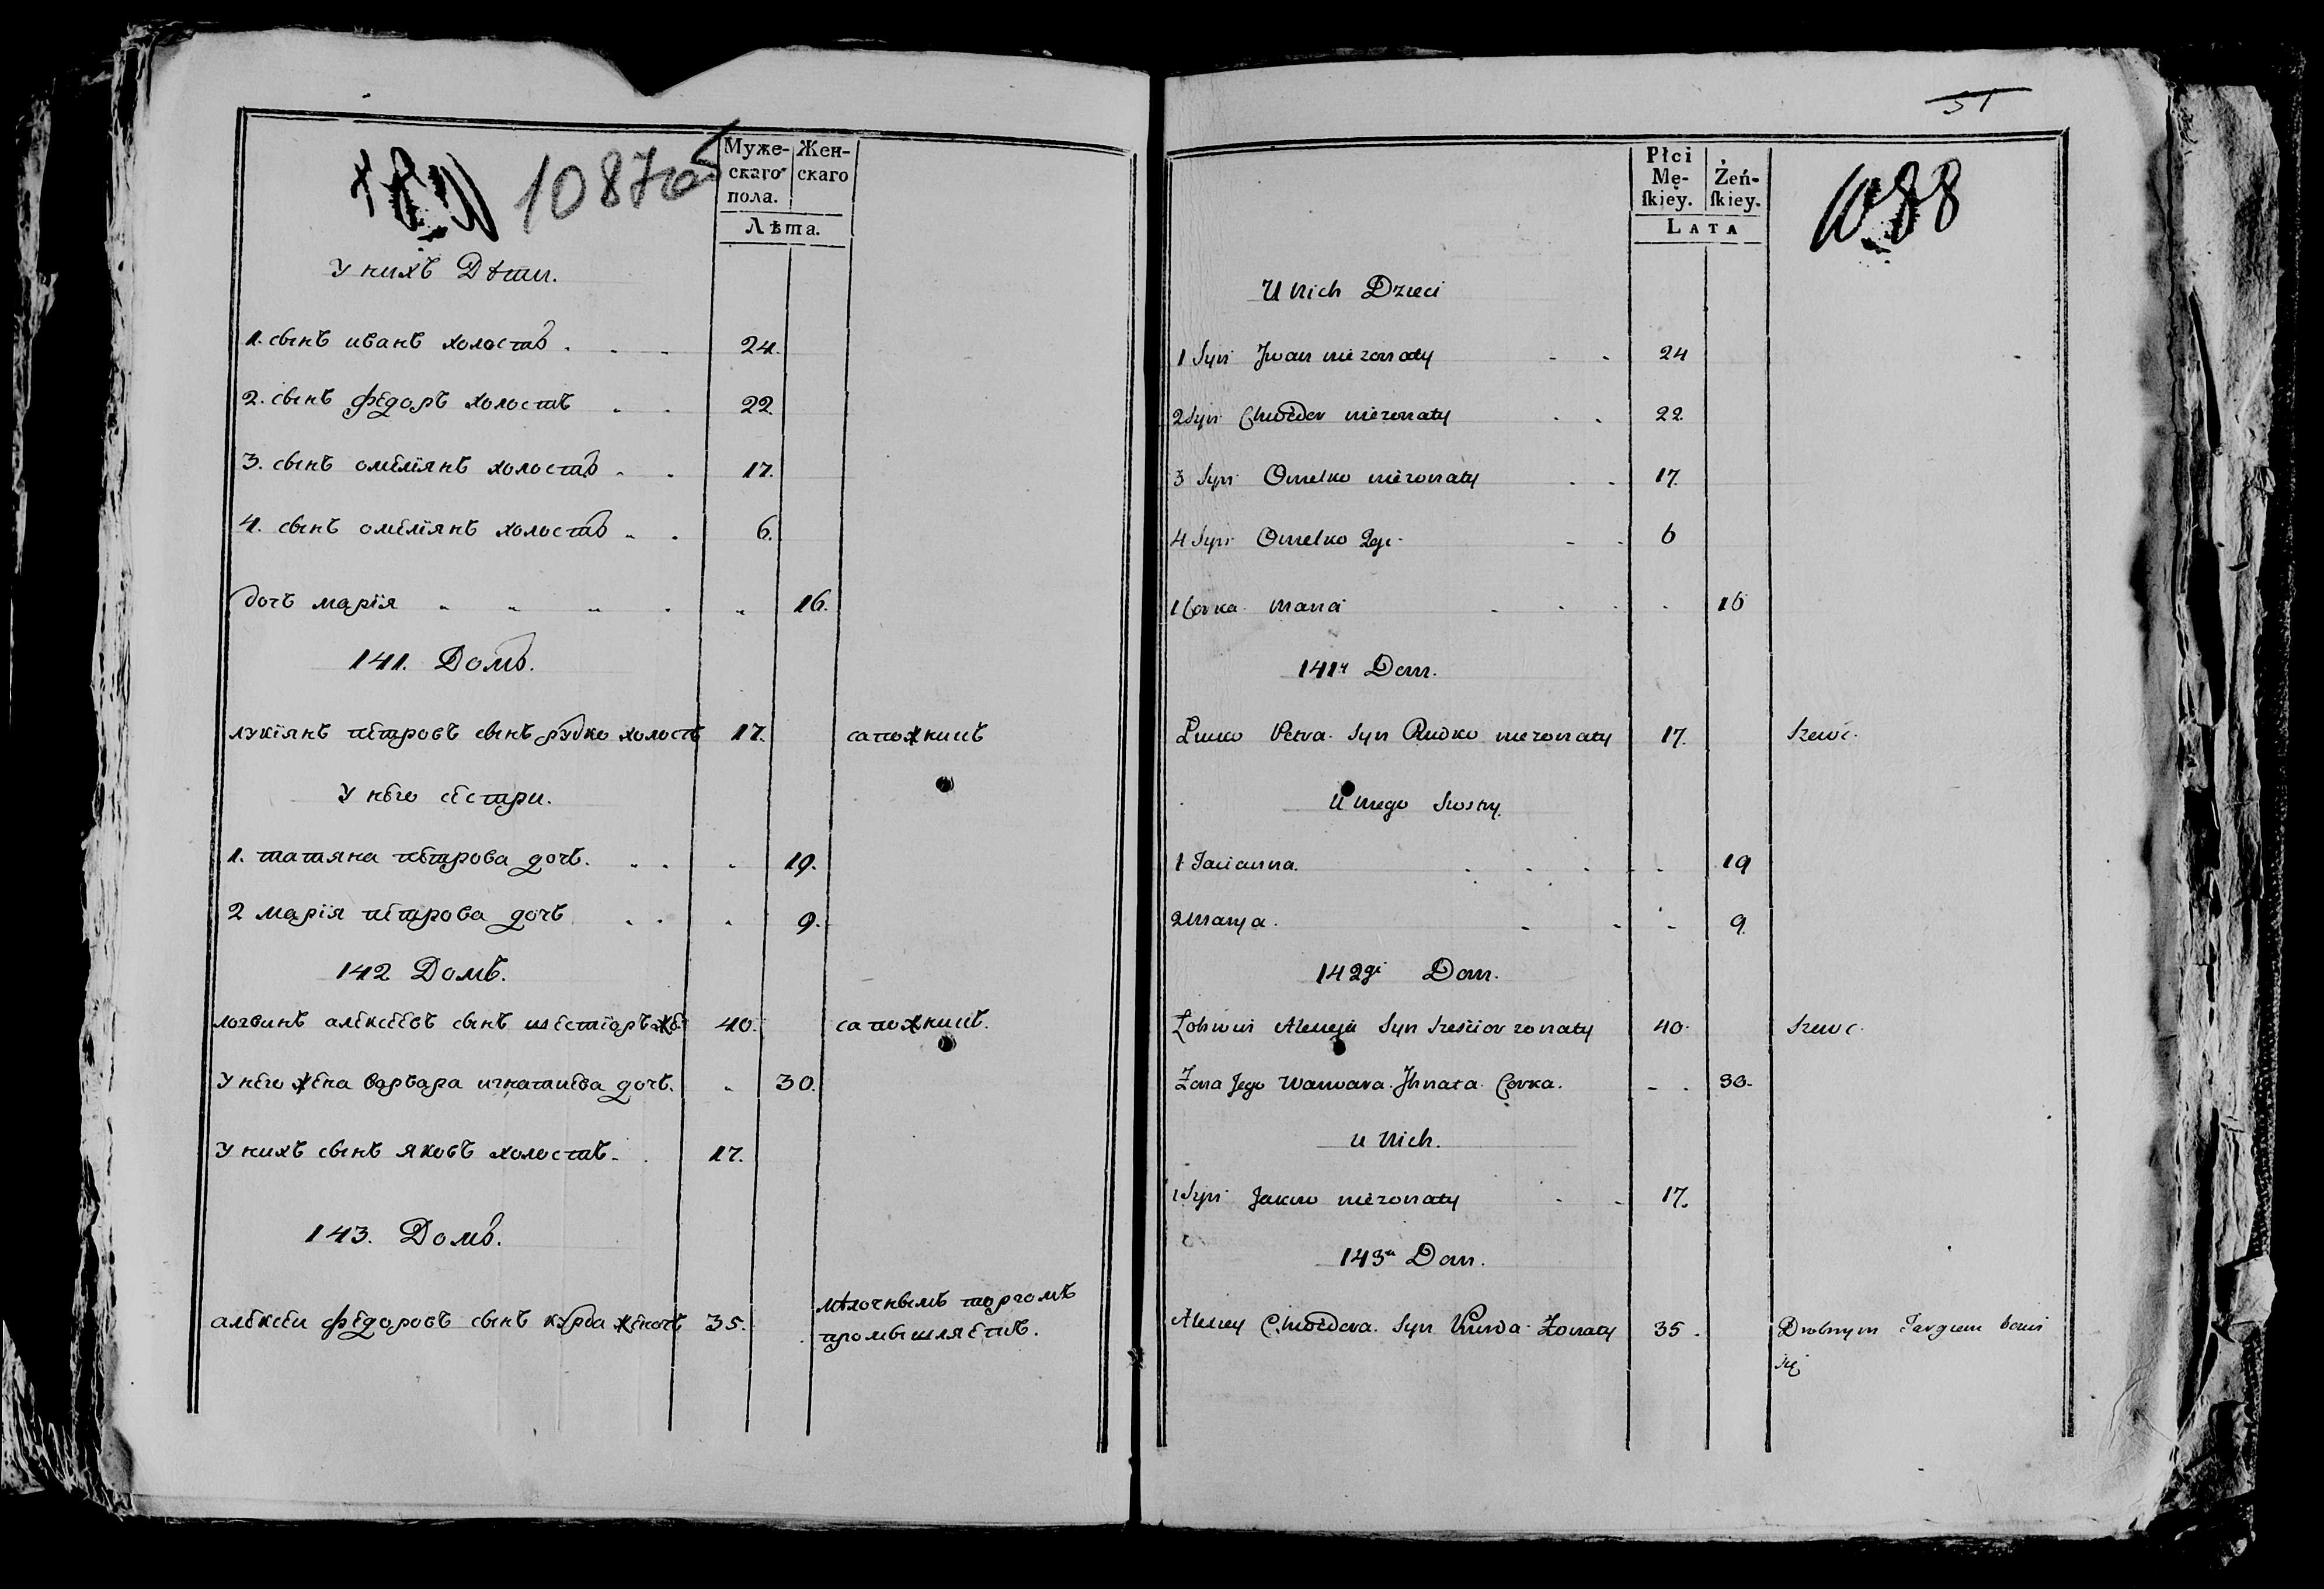 1087об
Муже-
скаго
пола.
Жен-
скаго
Лѣта.
У нихъ Дѣти.
1. сынъ иванъ холостъ . . . 24.
2. сынъ федоръ холостъ . . 22
3. сынъ омелїянъ холостъ . . 17.
4. сынъ омелїянъ холостъ . . 6.
дочь марїя . . . . . 16.
141. Домъ.
лукїянъ петровъ сынъ рудко холостъ 17. сапожникъ
У него сестри.
1. татяна петрова дочь. . . . 19.
2 марїя петрова дочь . . . 9.
142 Домъ.
логвинъ алексеевъ сынъ шестїоръ же: 40. сапожникъ.
У него жена варвара игнатиева дочь. . 30.
У нихъ сынъ яковъ холостъ. . 17.
143. Домъ.
алексеи федоровъ сынъ курва женатъ 35. мѣлочнымъ торгомъ
промышляетъ.
51
Płci
Mę-
ſkiey.
Żeń-
ſkiey.
LATA
1088
U Nich Dzieci
1 Syn Jwan niezonaty . . 24
2 Syn Chwedor niezonaty . . 22
3 Syn Omelko niezonaty . . 17.
4 Syn Omelko 2gi . . 6
1 Corka Maria . . . . 16
141y Dom.
Lucko Petra Syn Rudko niezonaty 17. Szewc.
U niego Siostry.
1 Tacianna. . . . . . 19
2 Marya. . . . 9
142gi Dom.
Lohwin Alexeja Syn Szescior zonaty 40. Szewc.
Zona Jego Warwara Jhnata Corka. . . 30.
U Nich.
1 Syn Jakow niezonaty . . 17.
143ci Dom.
Alexey Chwedora Syn Kurwa Zonaty 35. Drobnym Targiem bawi
się